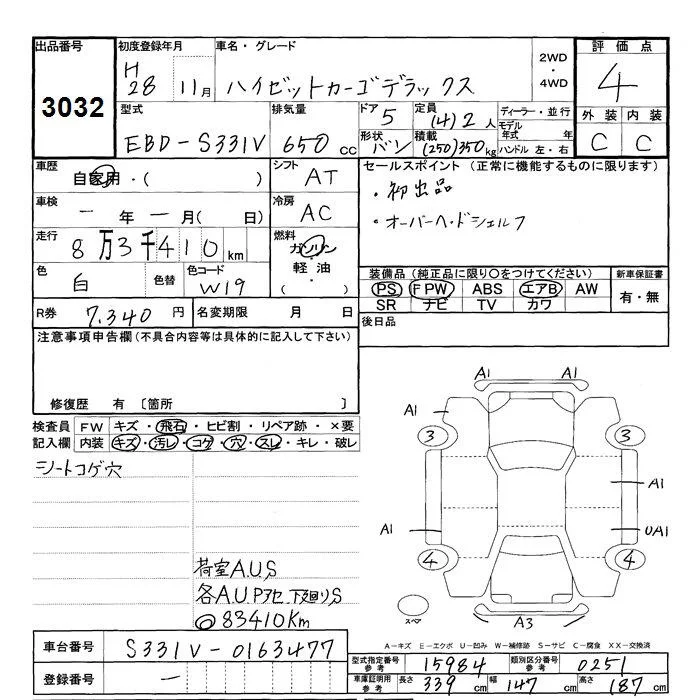 出品番号 初度登録年月 車名・グレード 2WD・4WD 評価点
3032 H28 11月 ハイゼットカーゴデラックス 4
型式 排気量 ドア 5 定員 (4)2人 ディーラー・並行 外装 内装
モデル年式 年
EBD-S331V 650cc 形状 バン 積載 (250)350kg ハンドル 左・右 C C
車歴 自家用・( ) シフト AT セールスポイント (正常に機能するものに限ります)
・初出品
車検 一年一月( 日) 冷房 AC ・オーバーヘッドシェルフ
走行 8万3千410km 燃料 ガソリン・軽油・( )
色 白 色替 色コード W19 装備品 (純正品に限り○をつけてください) 新車保証書
PS FPW ABS エアB AW 有・無
SR ナビ TV カワ
R券 7,340円 名変期限 月 日 後日品
注意事項申告欄 (不具合内容等は具体的に記入して下さい)
修復歴 有 〔箇所 〕
検査員記入欄 FW キズ・飛石・ヒビ割・リペア跡・×要
内装 キズ・汚レ・コゲ・穴・スレ・キレ・破レ
シートコゲ穴
荷室A.U.S
各A.U.Pアセ、下廻りS
◎83410Km
A1
A1 A1
3 3
A1
A1 UA1
4 4
スペア A3
A-キズ E-エクボ U-凹み W-補修跡 S-サビ C-腐食 XX-交換済
車台番号 S331V-0163477
型式指定番号参考 15984 類別区分番号参考 0251
登録番号 一
車庫証明用参考 長さ 339cm 幅 147cm 高さ 187cm